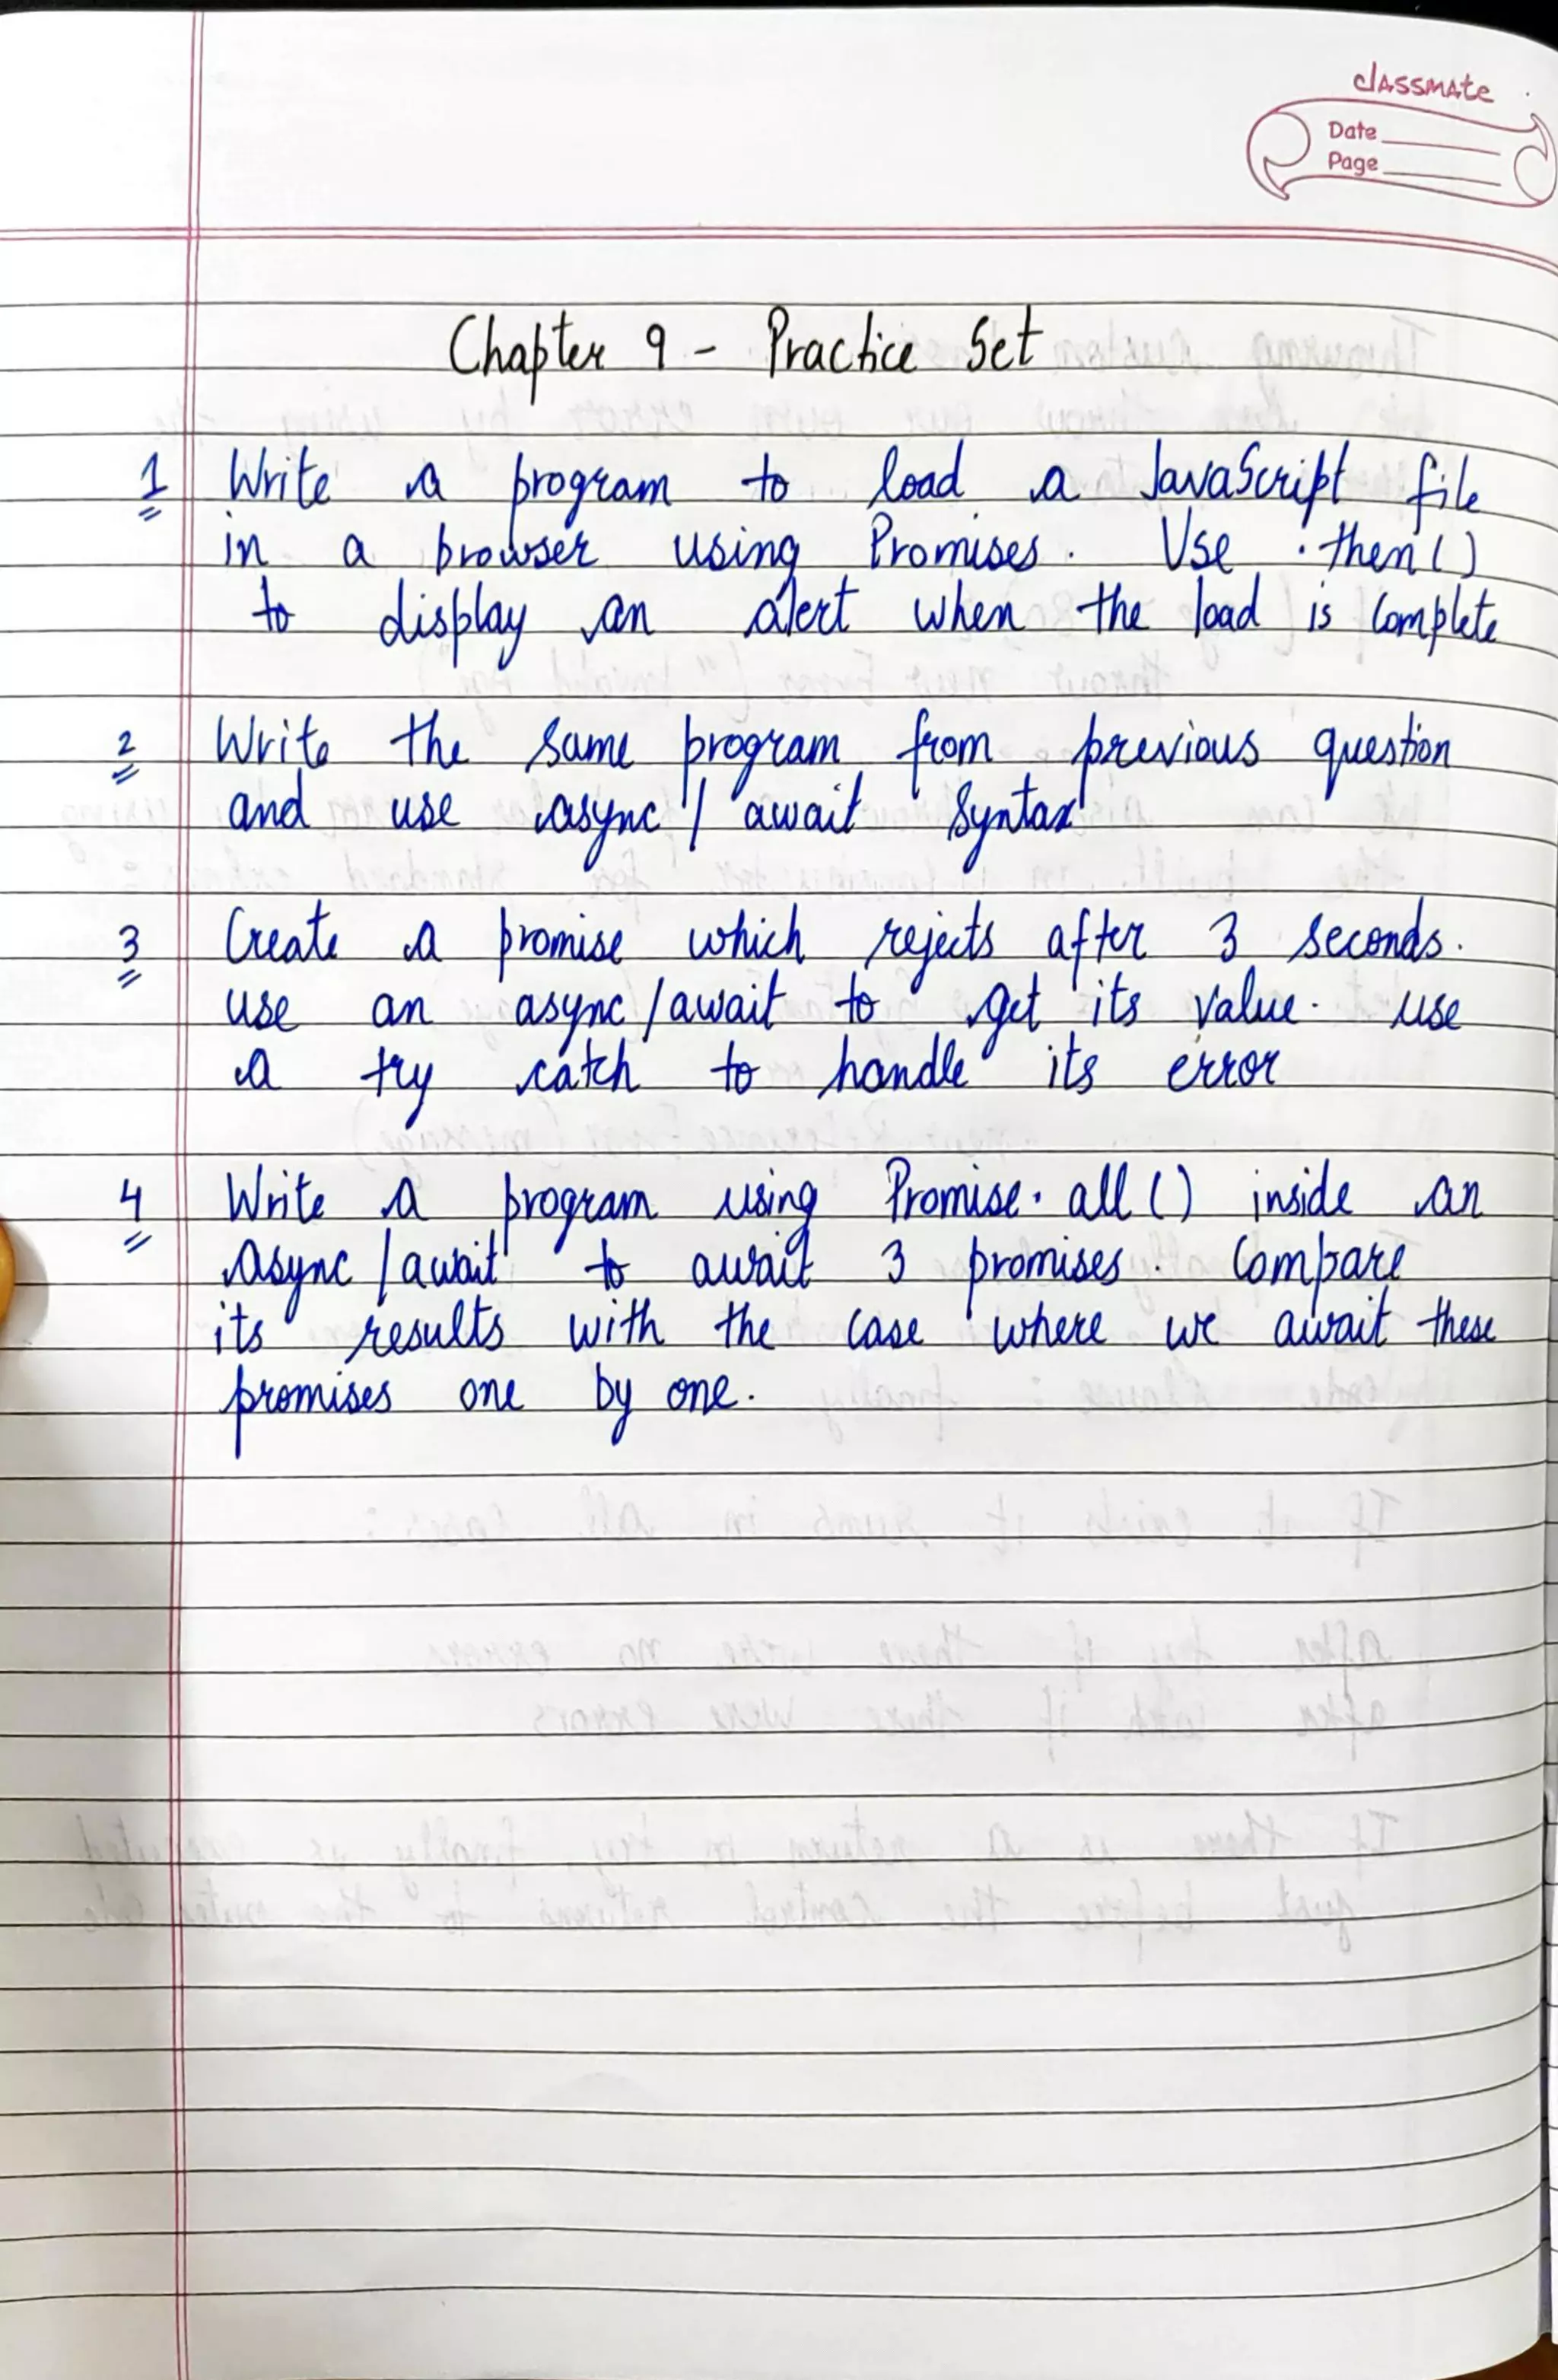 classmate
Date
Page
Chapter 9 - Practice Set
1 Write a program to load a JavaScript file
in a browser using Promises. Use .then()
to display an alert when the load is complete
2 Write the same program from previous question
and use async / await syntax
3 Create a promise which rejects after 3 seconds.
use an async / await to get its value. use
a try catch to handle its error
4 Write a program using Promise.all () inside an
async / await to await 3 promises. Compare
its results with the case where we await these
promises one by one.